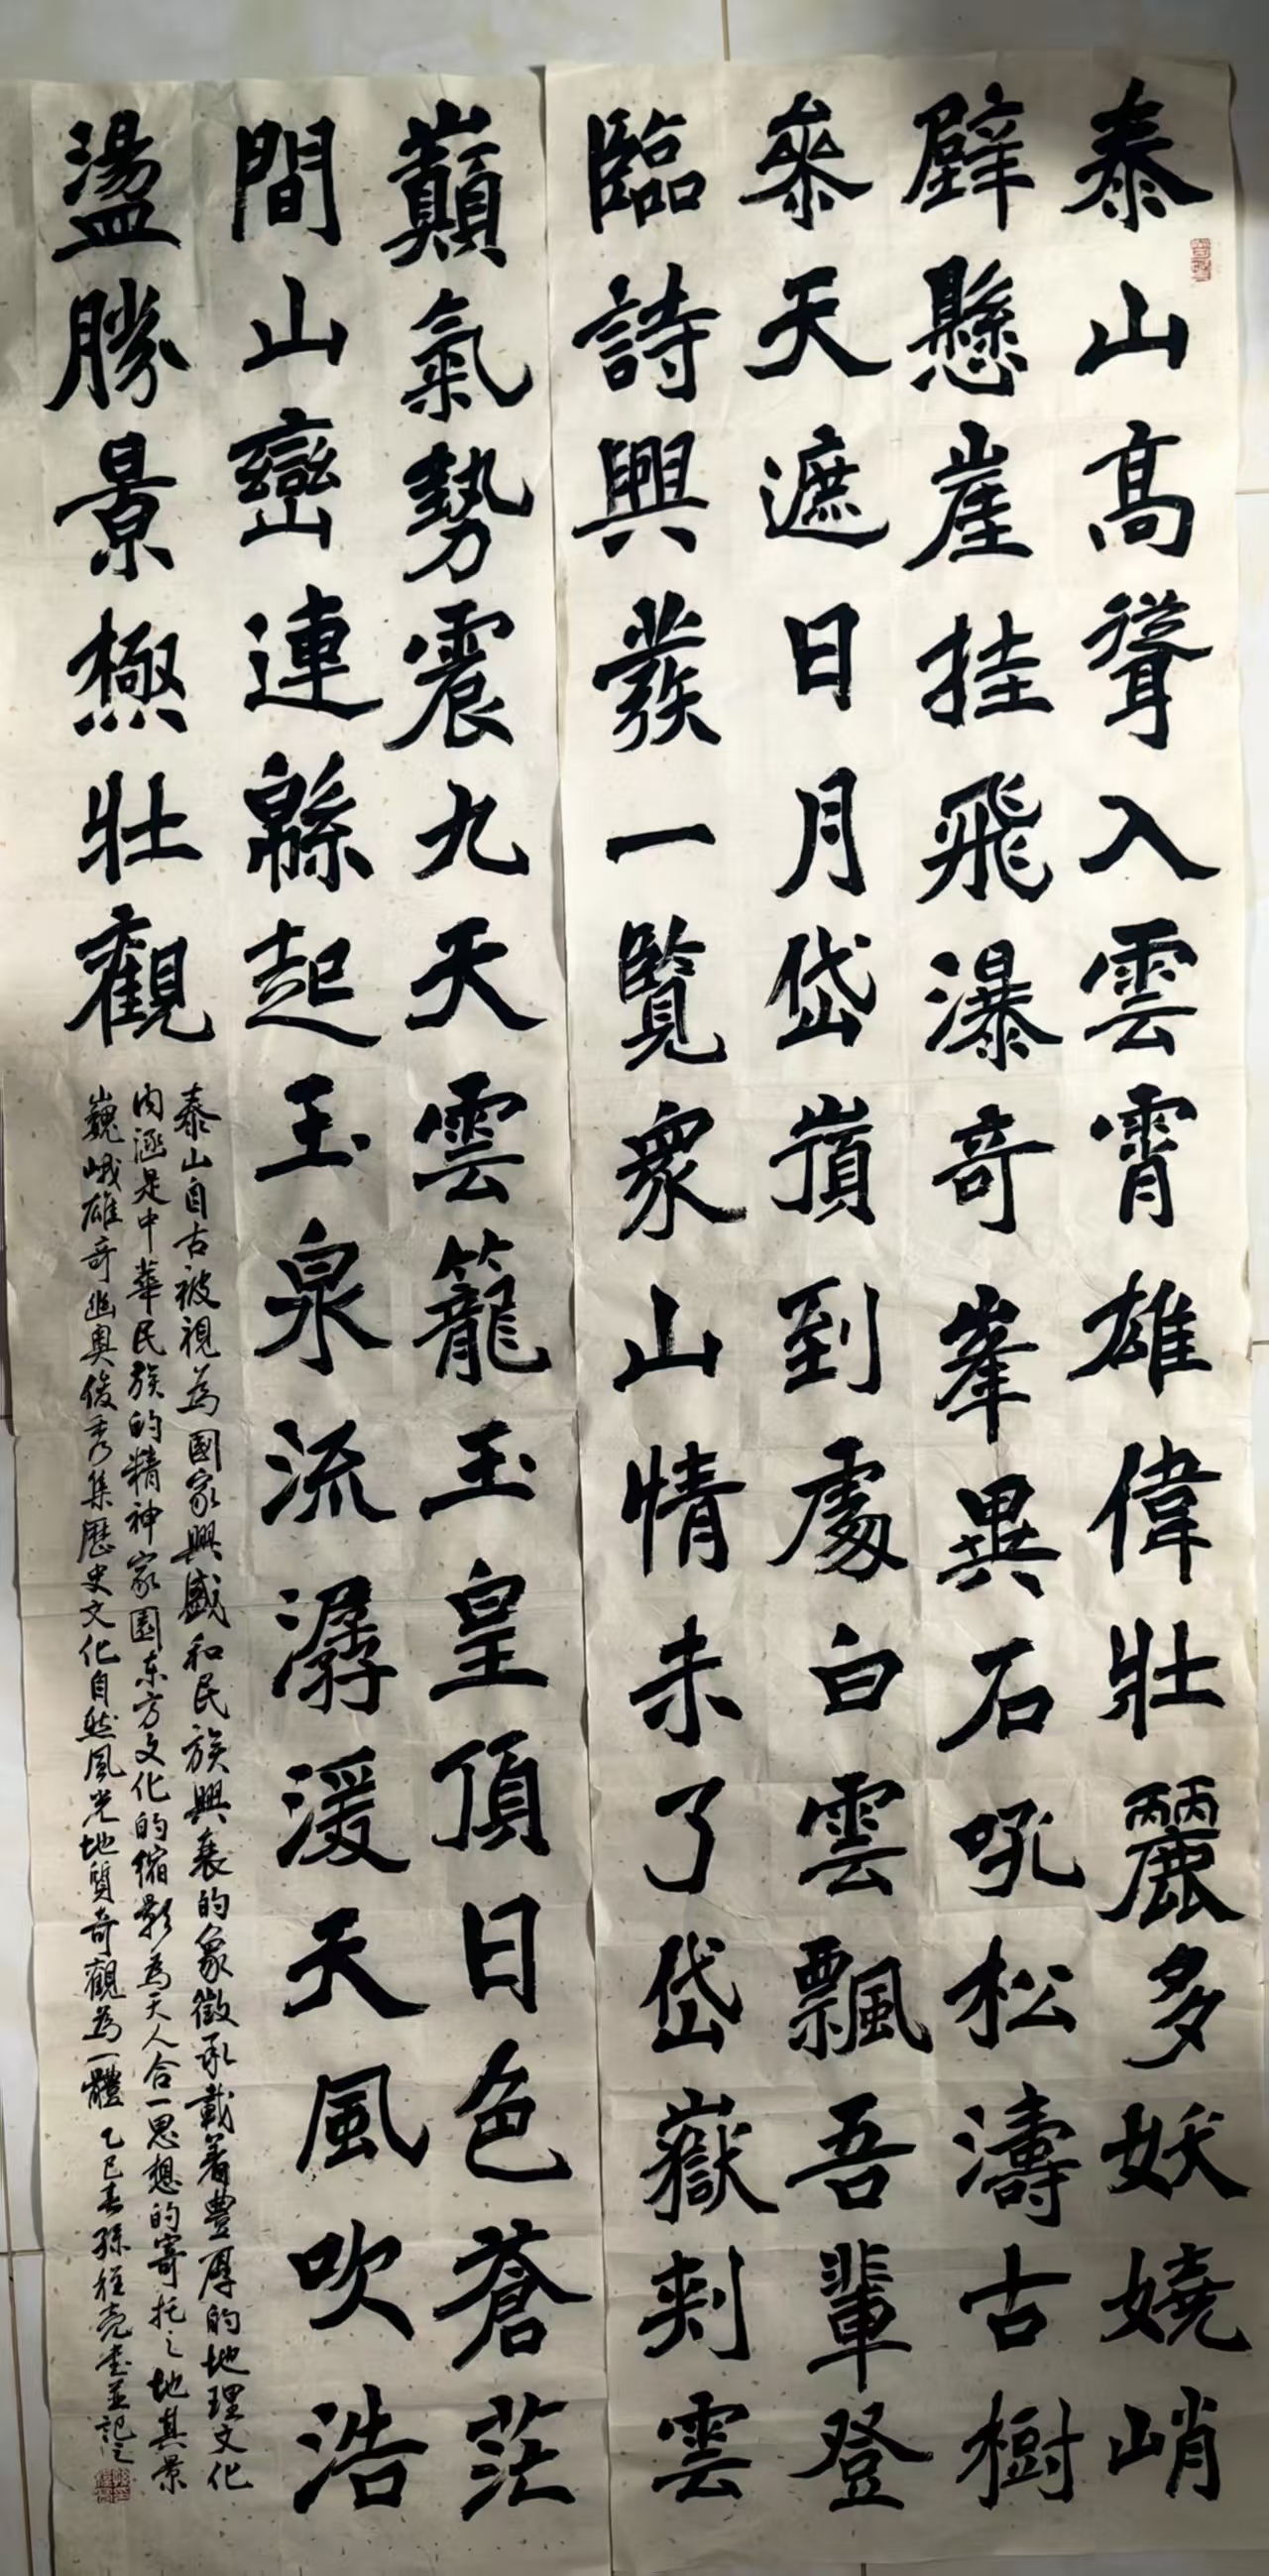 泰山高聳入雲霄雄偉壯麗多妖嬈峭
壁懸崖挂飛瀑奇峯異石吼松濤古樹
參天遮日月岱嶺到處白雲飄吾輩登
臨詩興發一覽衆山情未了岱嶽刺雲
巔氣勢震九天雲籠玉皇頂日色蒼茫
間山巒連緜起玉泉流潺湲天風吹浩
盪勝景極壯觀
泰山自古被視為國家興盛和民族興衰的象徵承載着豐厚的地理文化
内涵是中華民族的精神家園东方文化的縮影為天人合一思想的寄托之地其景
巍峨雄奇幽奧俊秀集歷史文化自然風光地質奇觀為一體 乙巳春孫桂亮書並記之